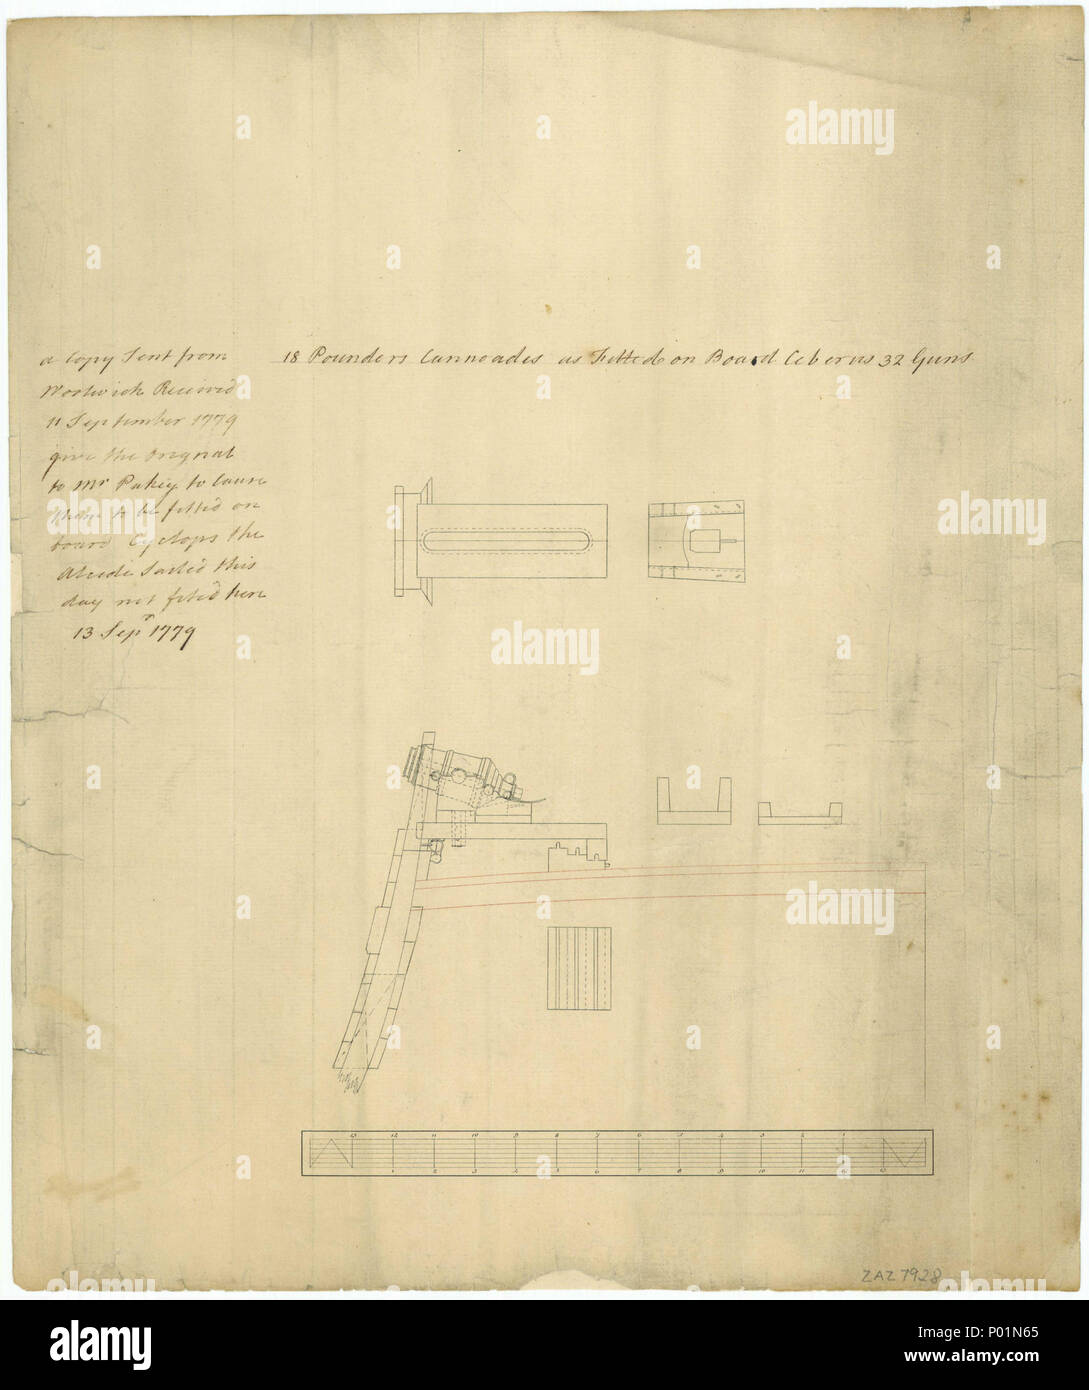 18 Pounders Cannoades as Fitted on Board Ceberus 32 Guns
a Copy Sent from
Woolwich Received
11 September 1779
give the Orignal
to Mr Pakey to Caus
them to be fitted on
board Cyclops the
Alcide Sailed this
day not fitted here
13 Sepr 1779
13 12 11 10 9 8 7 6 5 4 3 2 1
1 2 3 4 5 6 7 8 9 10 11 12 13
ZAZ7928
a
alamy
alamy
Image ID: P01N65
www.alamy.com